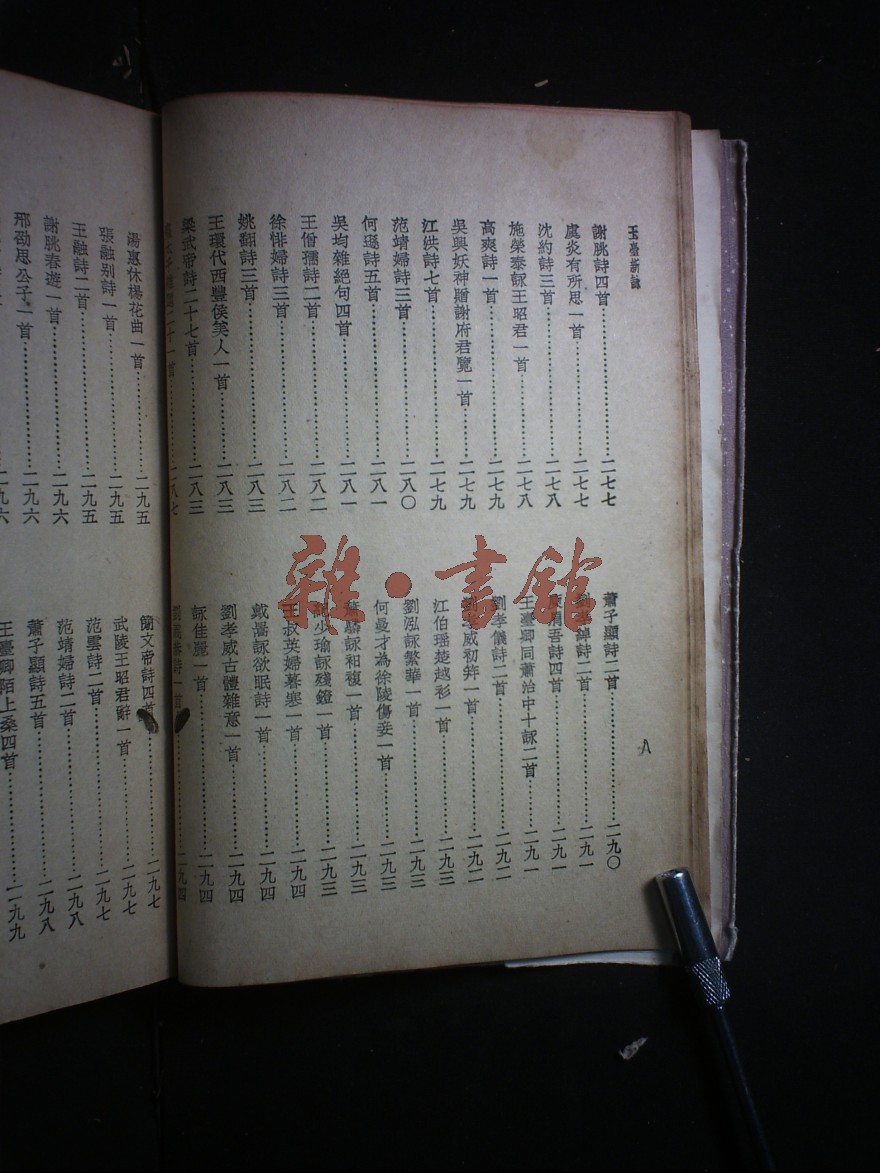 玉臺新詠
謝朓詩四首……二七七
虞炎有所思一首……二七七
沈約詩三首……二七八
施榮泰詠王昭君一首……二七八
高爽詩一首……二七九
吳興妖神贈謝府君覽一首……二七九
江洪詩七首……二七九
范靖婦詩三首……二八〇
何遜詩五首……二八一
吳均雜絕句四首……二八一
王僧孺詩二首……二八二
徐悱婦詩三首……二八二
姚翻詩三首……二八三
王環代西豐侯美人一首……二八三
梁武帝詩二十七首……二八三
二十一首……二八七
蕭子顯詩二首……二九〇
劉孝綽詩二首……二九一
庾肩吾詩四首……二九一
王臺卿同蕭治中十詠二首……二九一
劉孝儀詩二首……二九二
劉孝威初笄一首……二九二
江伯瑤楚越衫一首……二九三
劉泓詠繁華一首……二九三
何曼才為徐陵傷妾一首……二九三
蕭驎詠衵複一首……二九三
紀少瑜詠殘鐙一首……二九三
王叔英婦暮寒一首……二九四
戴暠詠欲眠詩一首……二九四
劉孝威古體雜意一首……二九四
詠佳麗一首……二九四
詩一首……二九四
八
湯惠休楊花曲一首……二九五
張融别詩一首……二九五
王融詩二首……二九五
謝朓春遊一首……二九六
邢劭思公子一首……二九六
二九六
簡文帝詩四首……二九七
武陵王昭君辭一首……二九七
范雲詩二首……二九七
范靖婦詩二首……二九八
蕭子顯詩五首……二九八
王臺卿陌上桑四首……二九九
雜·書館